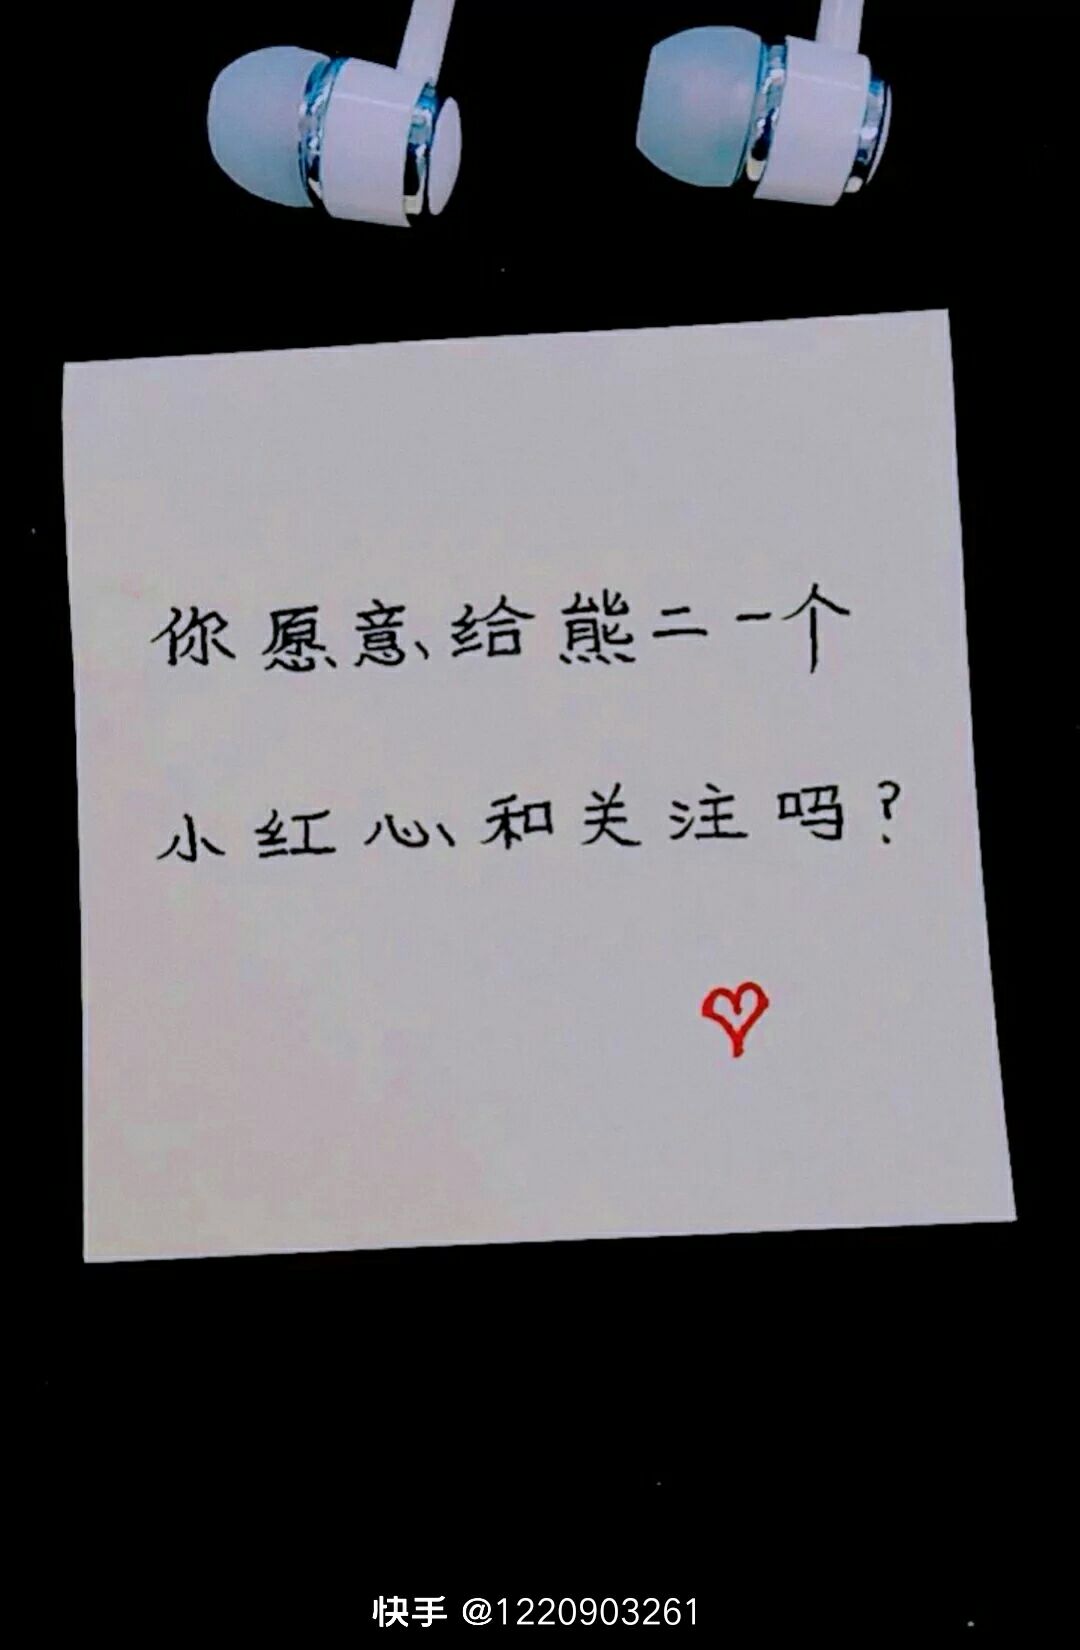 你愿意给熊二一个
小红心和关注吗?
快手 @1220903261